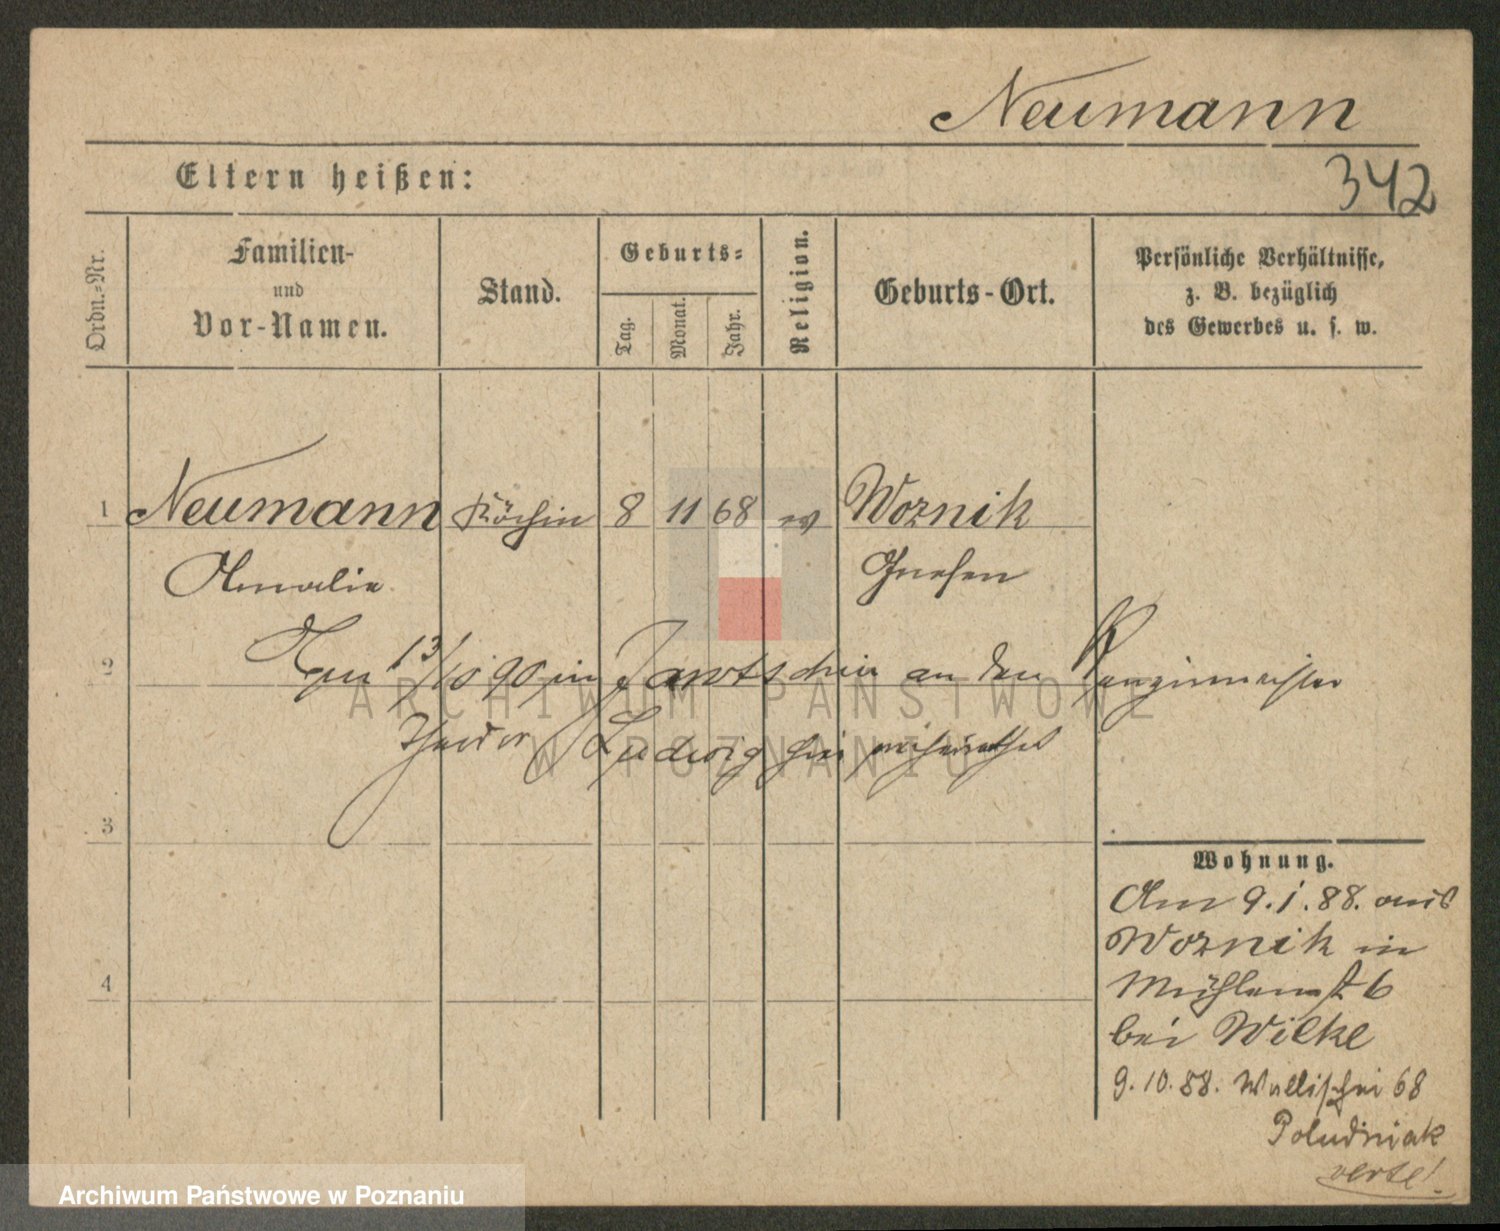 Neumann
Eltern heißen:
342
Ordn.-Nr.
Familien-
und
Vor-Namen.
Stand.
Geburts-
Tag.
Monat.
Jahr.
Religion.
Geburts-Ort.
Persönliche Verhältnisse,
z. B. bezüglich
des Gewerbes u. s. w.
1 Neumann Köchin 8 11 68 ev Woznik
Amalie Gnesen
2 13/10 90 in Jarotschin an den
Theodor Ludwig hier verheirathet
3
Wohnung.
Am 9.1.88. aus
Woznik in
4
Mühlenst 6
bei Wilke
9.10.88. Wallischei 68
Poludniak
verte!
ARCHIWUM PAŃSTWOWE
W POZNANIU
Archiwum Państwowe w Poznaniu